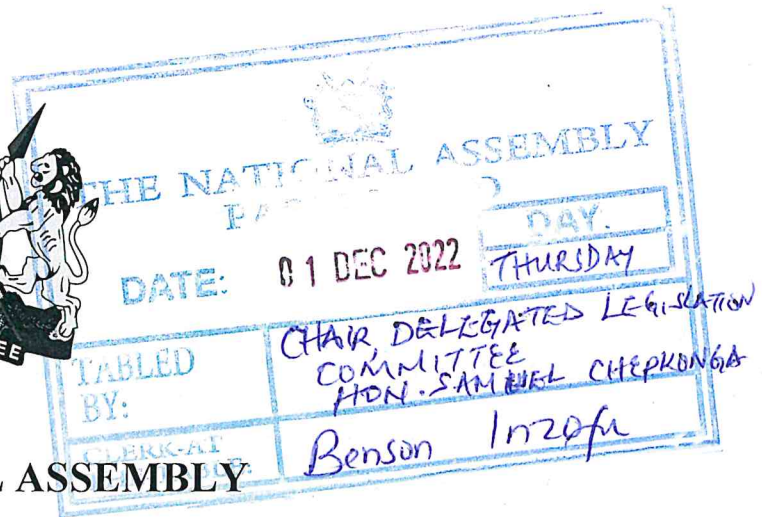 THE NATIONAL ASSEMBLY
DAY.
DATE: 01 DEC 2022 THURSDAY
TABLED BY: CHAIR DELEGATED LEGISLATION
COMMITTEE
HON. SAMUEL CHEPKONGA
CLERK-AT Benson Inzofu
ASSEMBLY